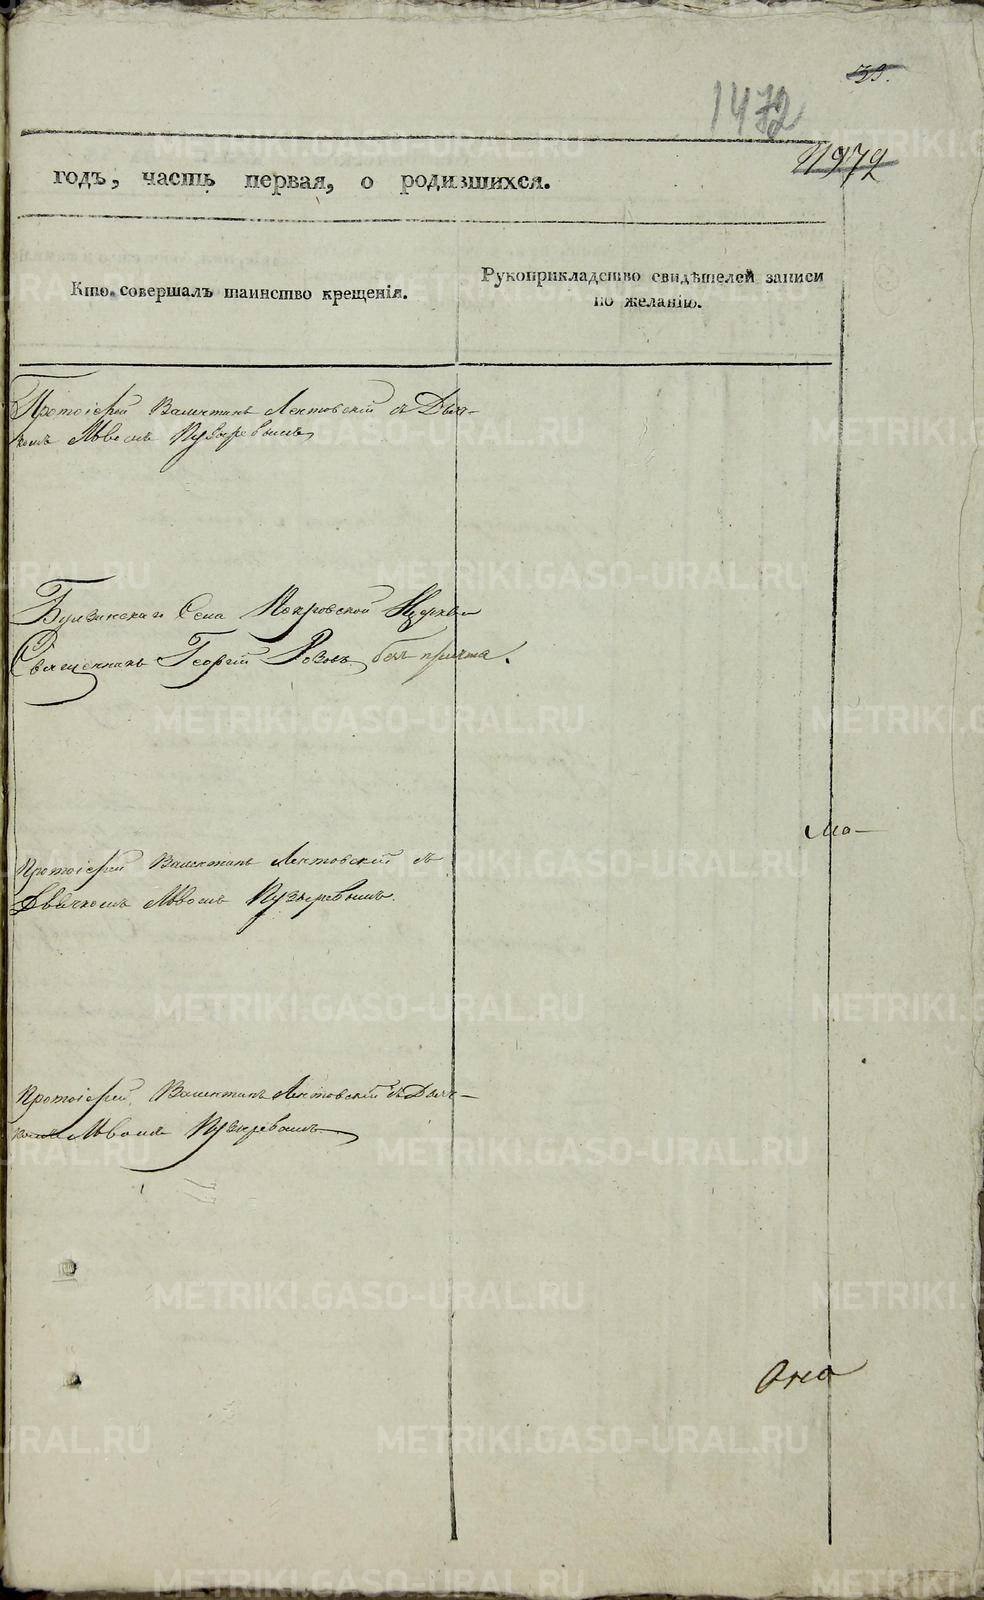 39.
1472
1972
годъ, часть первая, о родившихся.
Кто совершалъ таинство крещенія.
Рукоприкладство свидѣтелей записи
по желанію.
Протоіерей Валентинъ Лентовскій съ Дьяч-
комъ Львомъ Пузыревымъ
Села Покровской Церкви
Священникъ Георгій без причта.
Протоіерей Валентинъ Лентовскій съ
Дьячкомъ Львомъ Пузыревымъ.
Протоіерей Валентинъ Лентовскій съ Дьяч-
комъ Львомъ Пузыревымъ
METRIKI.GASO-URAL.RU